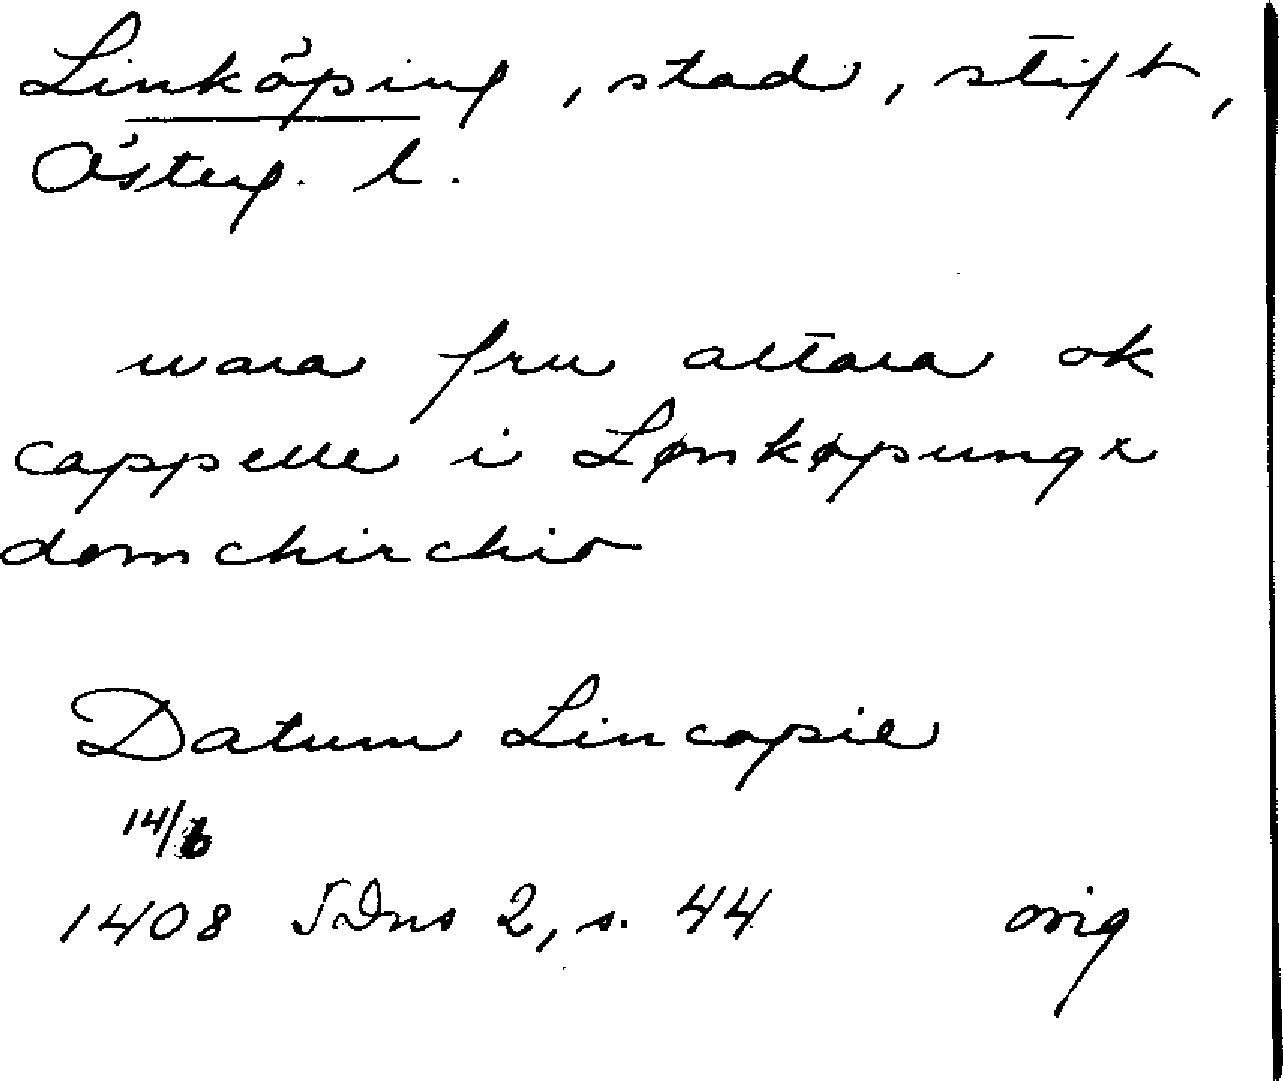 Linköping, stad, stift,
Österg. l.
wara fru altara ok
cappelle i Lønkøpungx
domchirchio
Datum Lincopie
14/6
1408 SDns 2, s. 44 orig